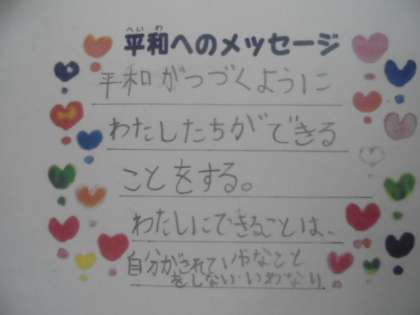 へいわ
平和へのメッセージ
平和がつづくように
わたしたちができる
ことをする。
わたしにできることは、
自分がされていやなこと
をしない・いわない